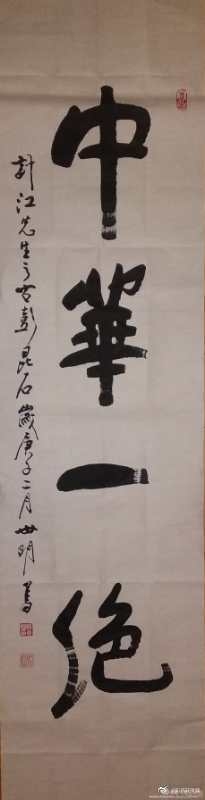 中華一絶
針江先生之古彭昆石歲庚子二月世明寫